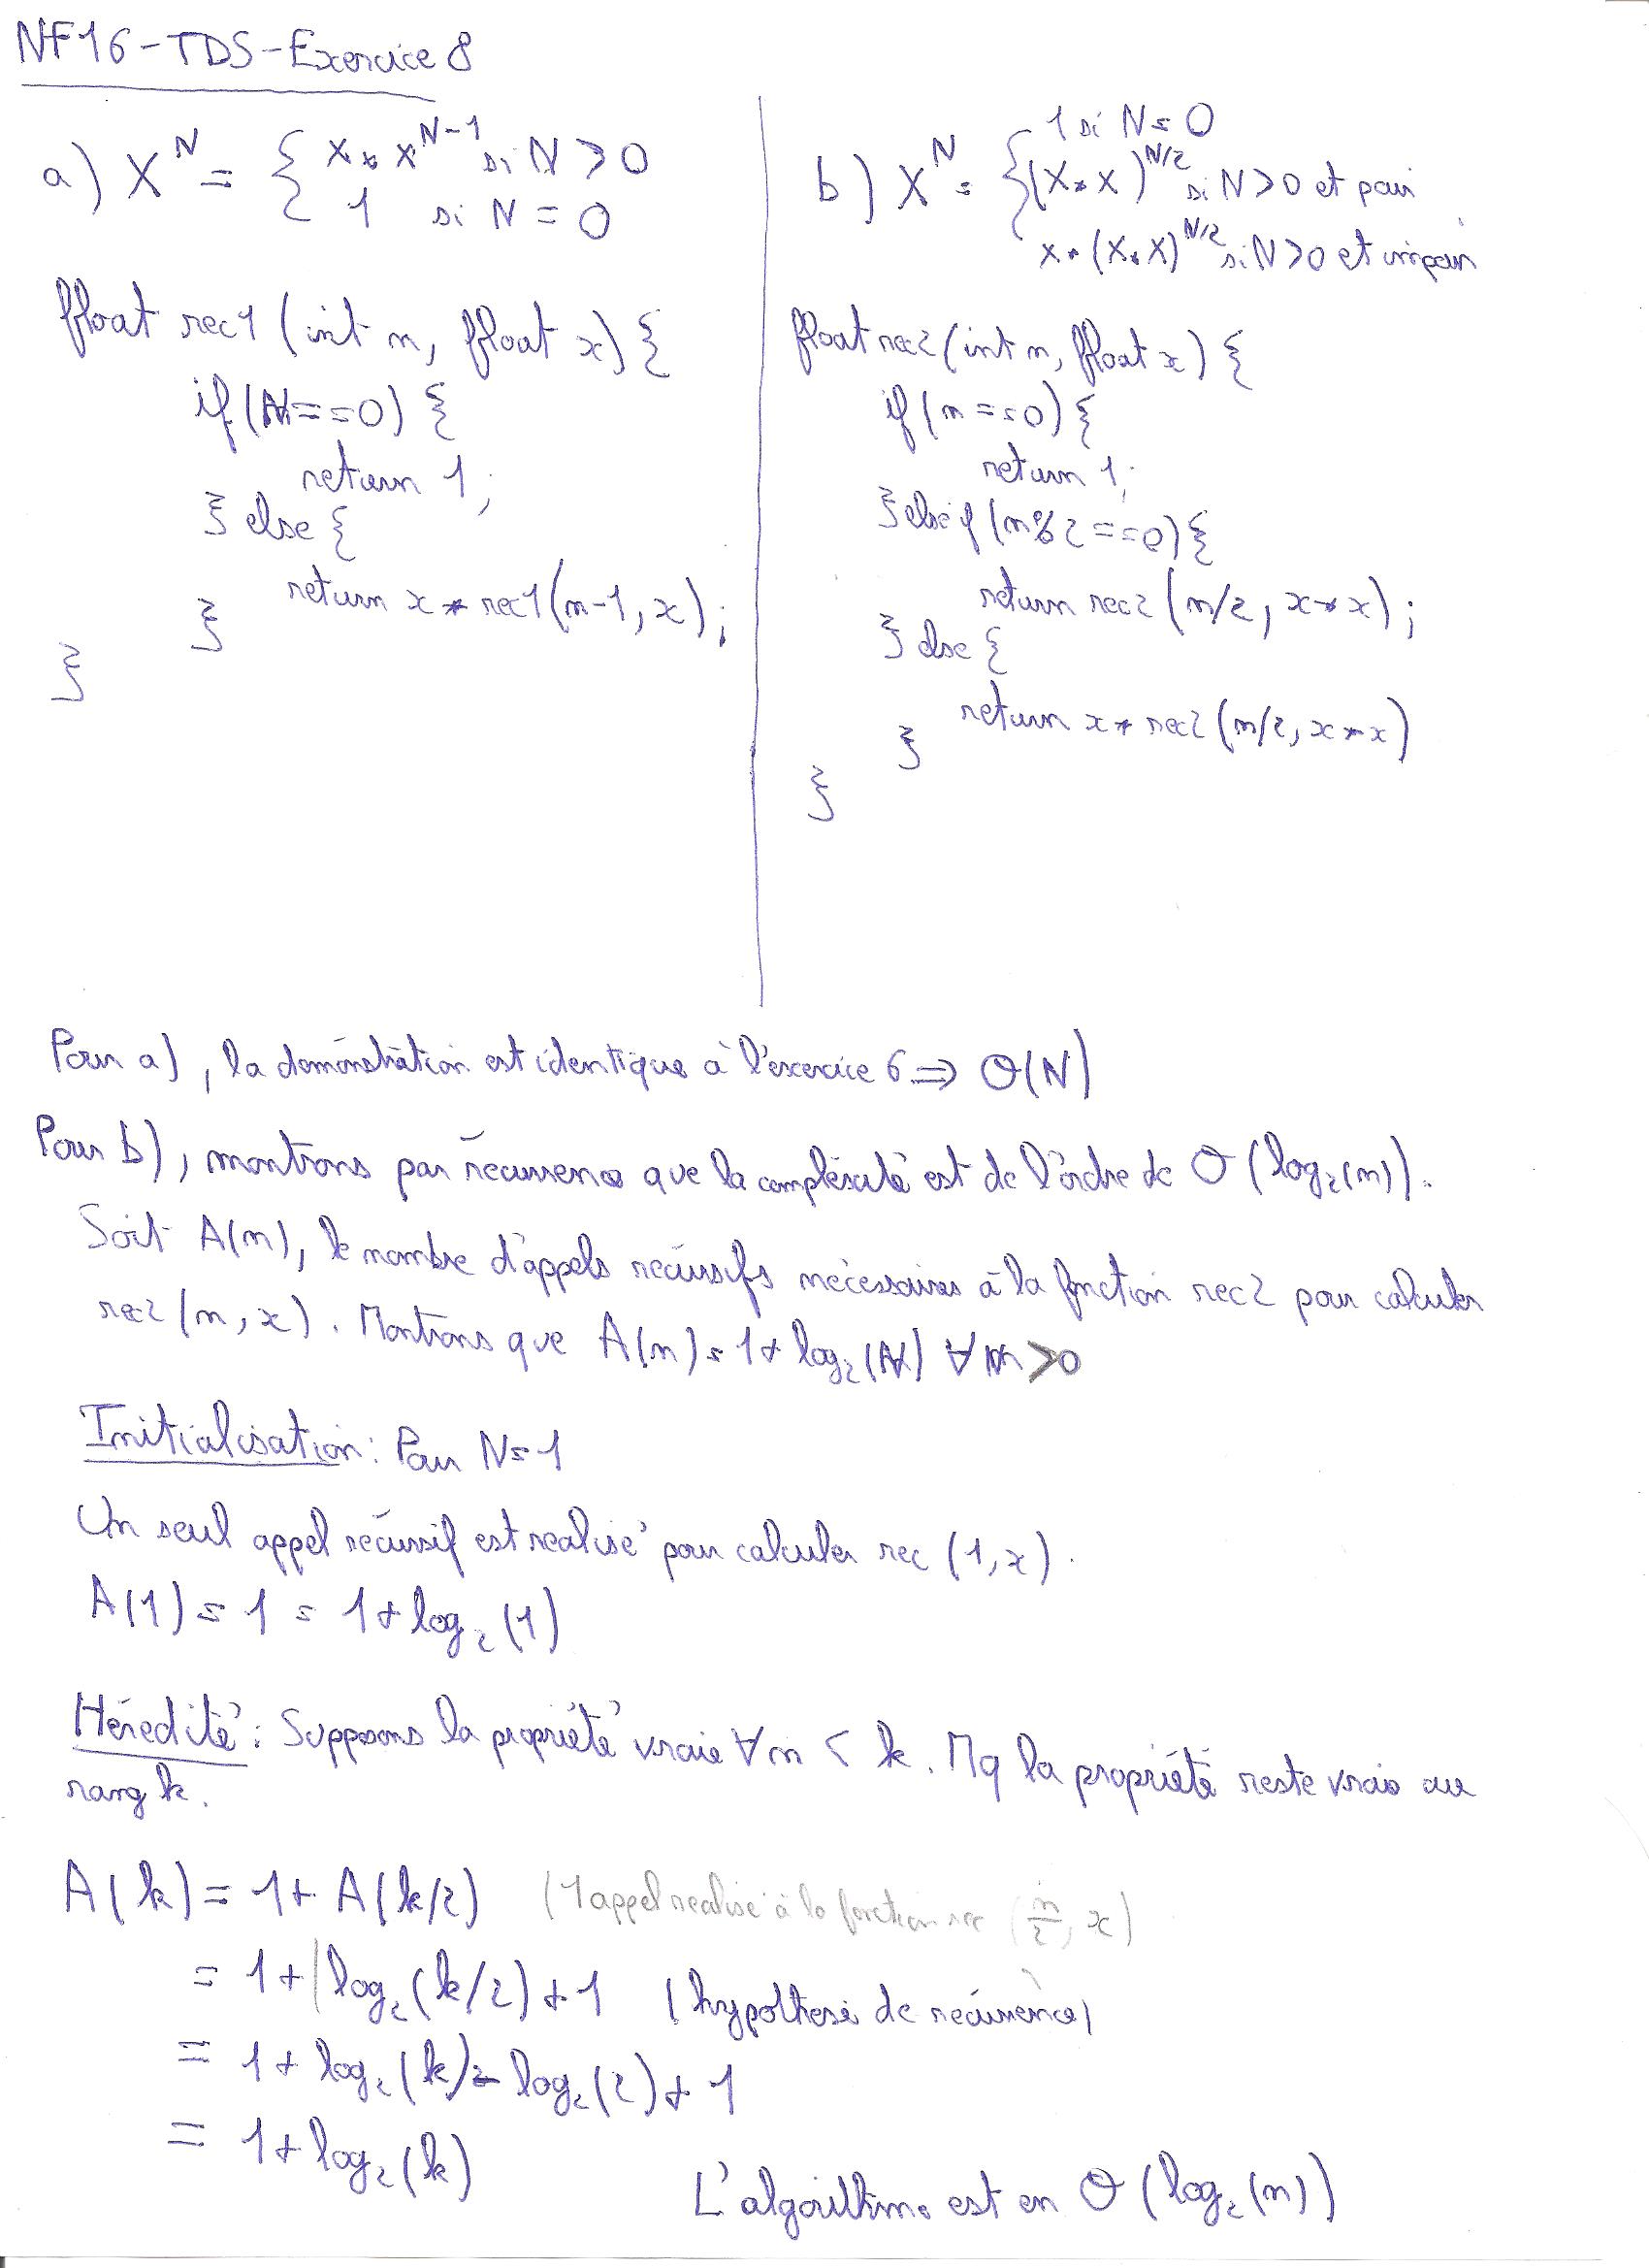 NF16-TD5-Exercice 8
a) X^N = { x * x^(N-1) si N > 0
1 si N = 0
float rec1 (int n, float x) {
if (N == 0) {
return 1;
} else {
return x * rec1(n-1, x);
}
}
b) X^N = { 1 si N = 0
(X * X)^(N/2) si N > 0 et pair
x * (X * X)^(N/2) si N > 0 et impair
float rec2 (int n, float x) {
if (n == 0) {
return 1;
} else if (n % 2 == 0) {
return rec2 (n/2, x * x);
} else {
return x * rec2 (n/2, x * x)
}
}
Pour a), la démonstration est identique à l'exercice 6 ⇒ O(N)
Pour b), montrons par récurrence que la complexité est de l'ordre de O (log₂(n)).
Soit A(n), le nombre d'appels récursifs nécessaires à la fonction rec2 pour calculer
rec2 (n, x). Montrons que A(n) = 1 + log₂(N) ∀ n > 0
Initialisation : Pour N = 1
Un seul appel récursif est réalisé pour calculer rec (1, x).
A(1) = 1 = 1 + log₂(1)
Hérédité : Supposons la propriété vraie ∀ n < k. Mq la propriété reste vraie au
rang k.
A(k) = 1 + A(k/2) (1 appel réalisé à la fonction rec (n/2, x)
= 1 + log₂(k/2) + 1 (hypothèse de récurrence)
= 1 + log₂(k) - log₂(2) + 1
= 1 + log₂(k)
L'algorithme est en O (log₂(n))